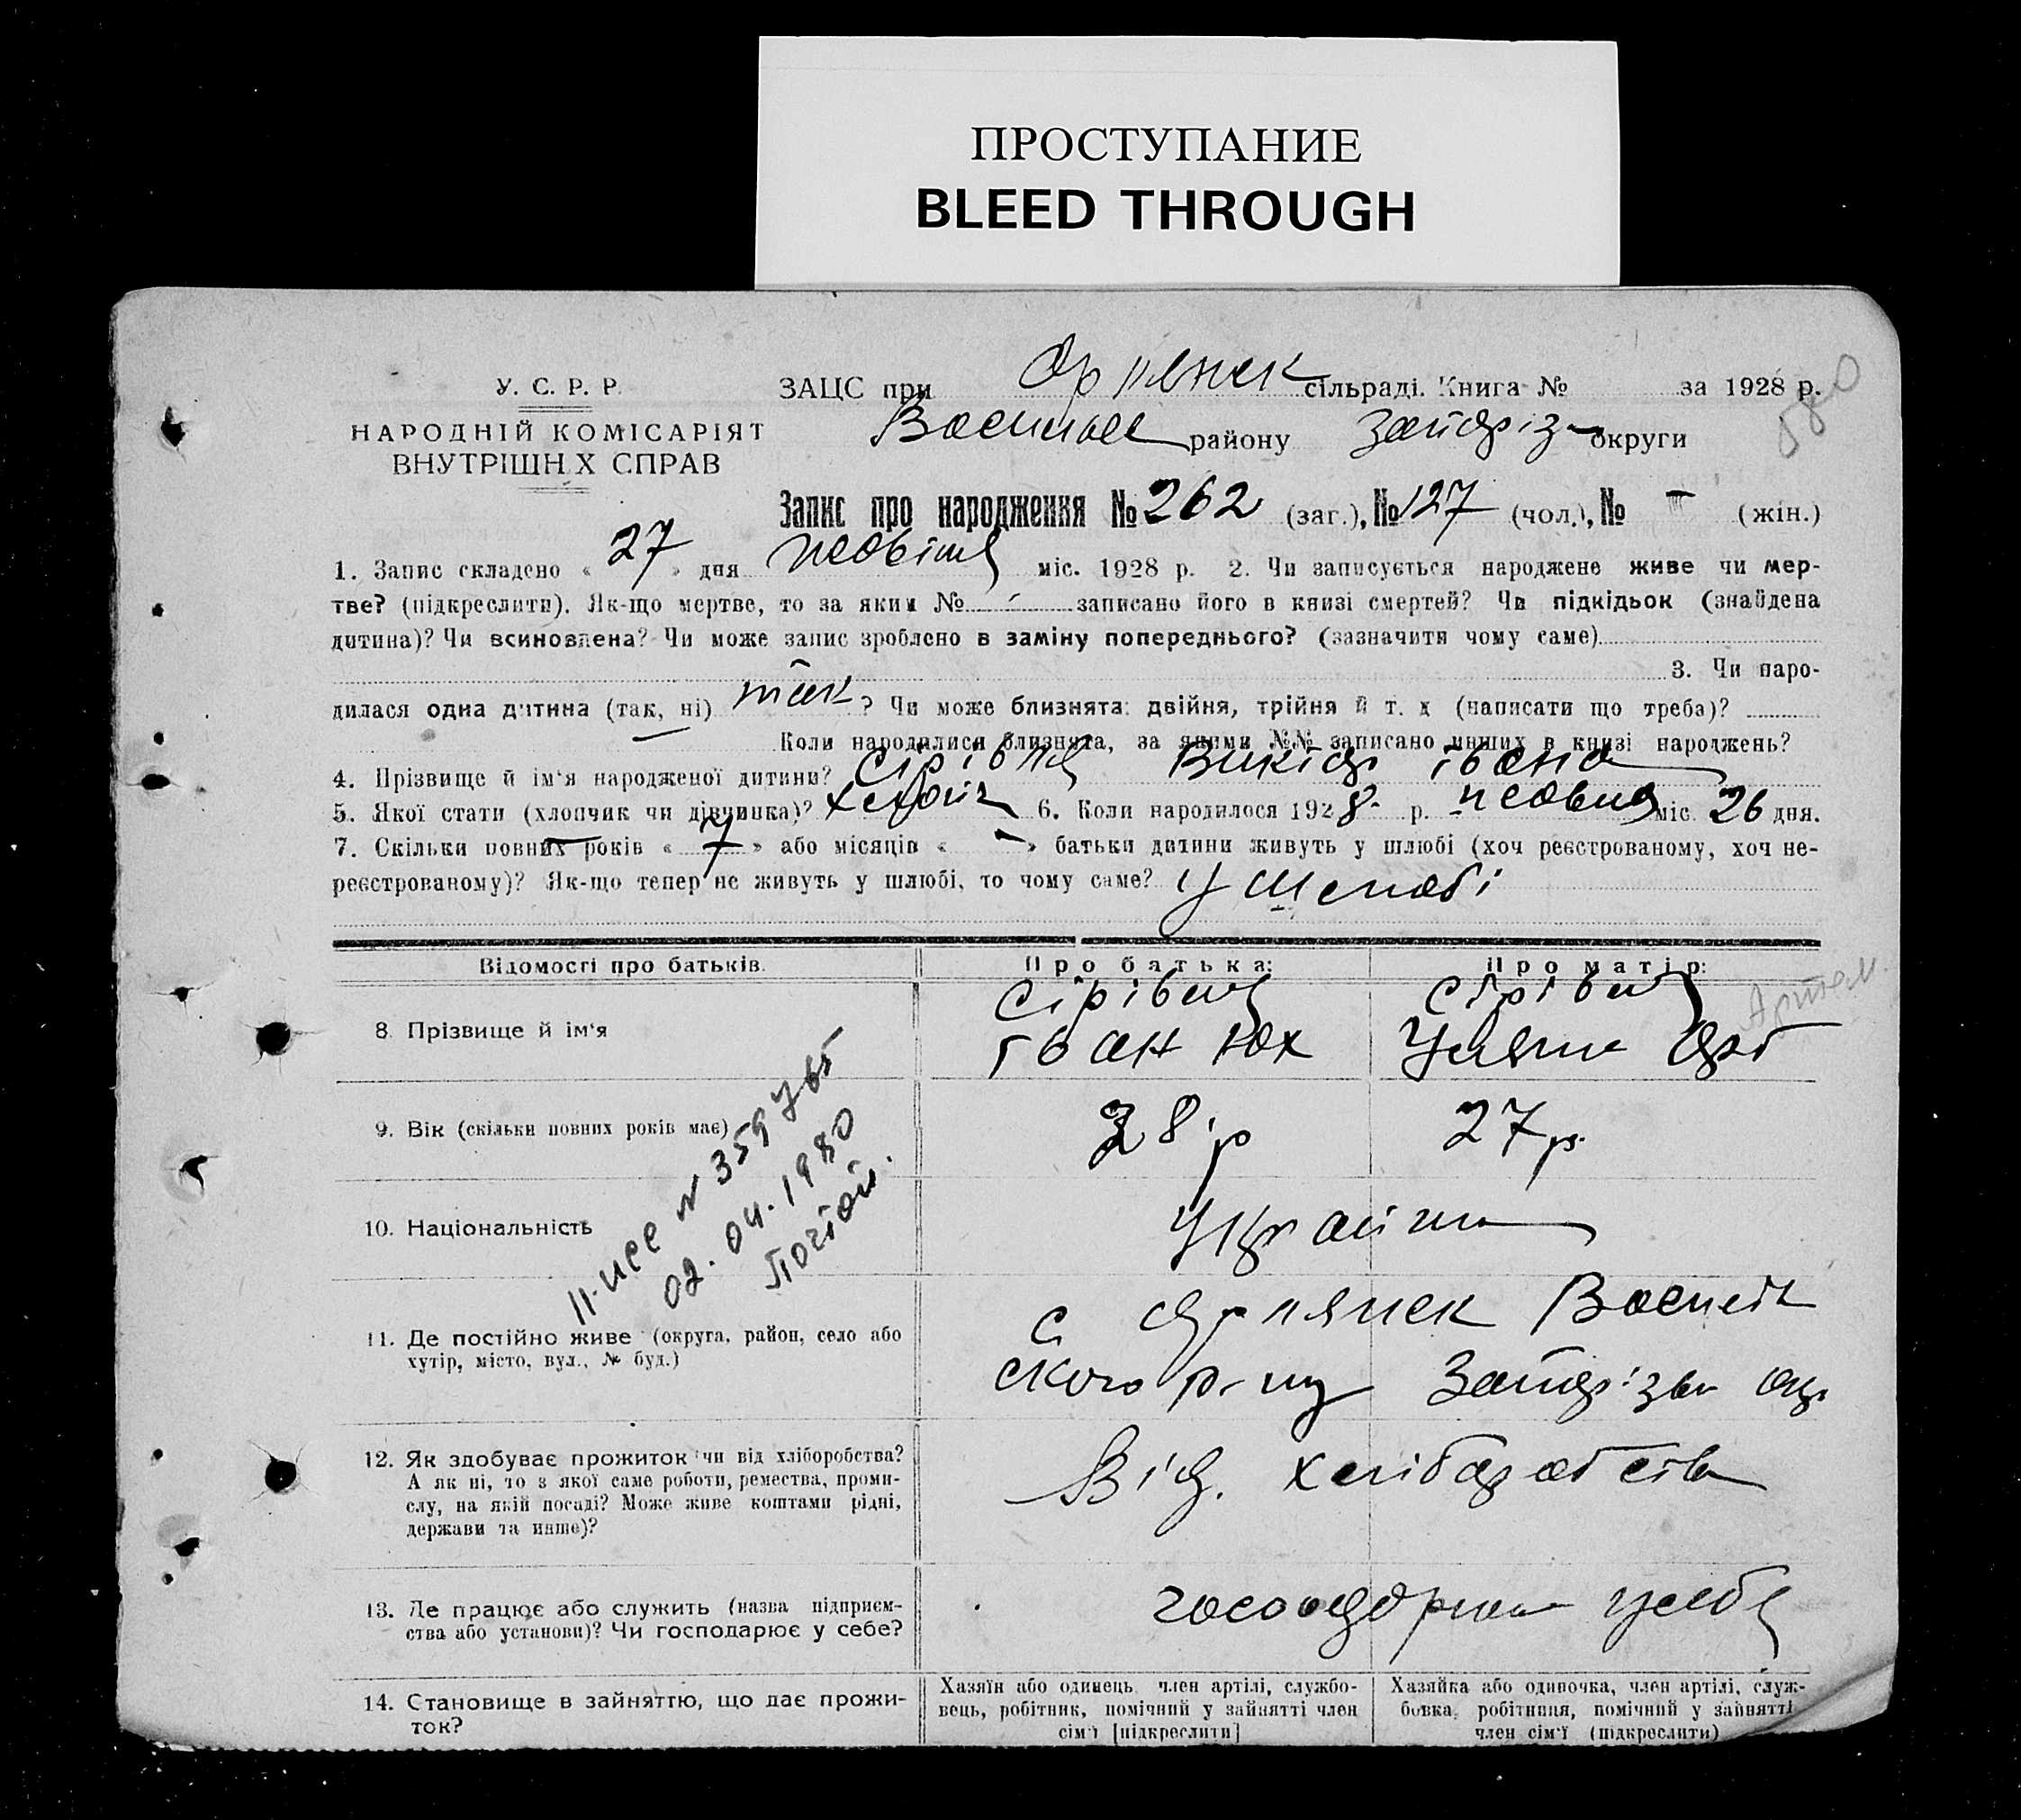 ПРОСТУПАНИЕ
BLEED THROUGH
У. С. Р. Р.
НАРОДНІЙ КОМІСАРІЯТ
ВНУТРІШН Х СПРАВ
ЗАЦС при Орлянск сільраді. Книга № за 1928 р.
580
району Запоріз округи
Запис про народження № 262 (заг.), № 127 (чол.), № – (жін.)
1. Запис складено « 27 » дня жовтня міс. 1928 р. 2. Чи записується народжене живе чи мер-
тве? (підкреслити). Як-що мертве, то за яким № записано його в книзі смертей? Чи підкідьок (знайдена
дитина)? Чи всиновлена? Чи може запис зроблено в заміну попереднього? (зазначити чому саме)
3. Чи наро-
дилася одна дитина (так, ні) так ? Чи може близнята: двійня, трійня й т. д (написати що треба)?
Коли народилися близнята, за якими №№ записано инших в книзі народжень?
4. Прізвище й ім'я народженої дитини? Вікіор Івано
5. Якої стати (хлопчик чи дівчинка)? 6. Коли народилося 1928 р. жовтня міс. 26 дня.
7. Скільки повних років « 7 » або місяців « – » батьки дитини живуть у шлюбі (хоч реєстрованому, хоч не-
реєстрованому)? Як-що тепер не живуть у шлюбі, то чому саме? У шлюбі
Відомості про батьків.
Про батька:
Про матір:
8. Прізвище й ім'я
Іван Юх
Уляна
Артем.
9. Вік (скільки повних років має)
28 р
27 р.
№ 359765
02.04.1980
10. Національність
Україн
11. Де постійно живе (округа, район, село або
хутір, місто, вул., № буд.)
с Орлянск
ского р-ну Запорізьк окр
12. Як здобуває прожиток чи від хліборобства?
А як ні, то з якої саме роботи, ремества, проми-
слу, на якій посаді? Може живе коштами рідні,
держави та инше)?
Від. хліборобства
13. Де працює або служить (назва підприєм-
ства або установи)? Чи господарює у себе?
у себе
14. Становище в зайняттю, що дає прожи-
ток?
Хазяїн або одинець член артілі, службо-
вець, робітник, помічний у зайнятті член
сім'ї [підкреслити]
Хазяйка або одиночка, член артілі, служ-
бовка, робітниця, помічний у зайнятті
член сім'ї (підкреслити)